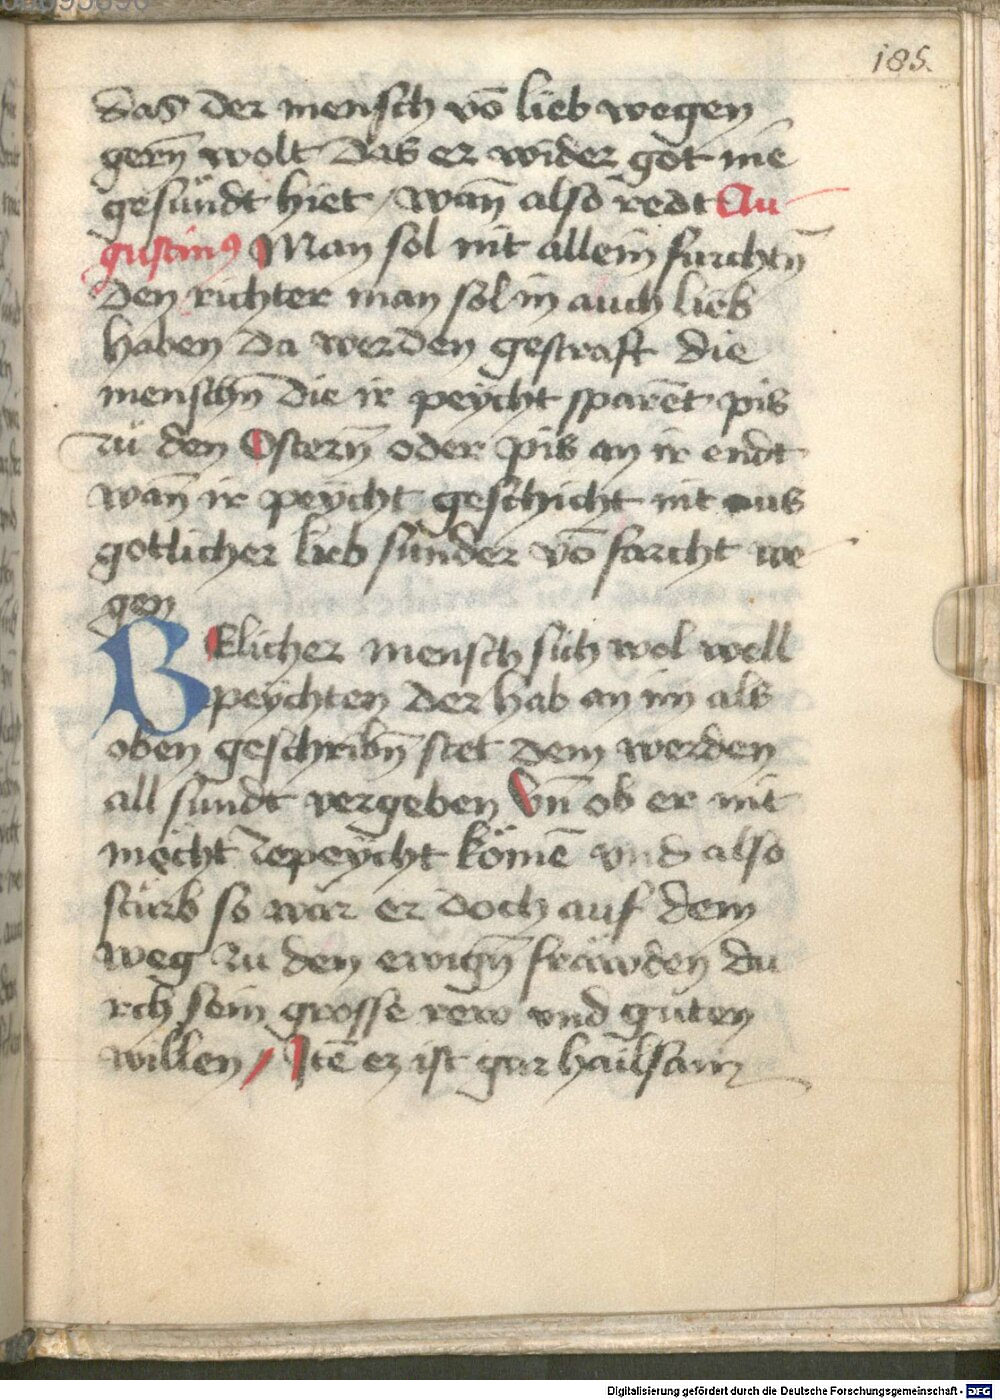 185.
das der mensch vō lieb wegen
gern̄ wolt das er wider got nie
gesündt hiet / wan̄ also redt Au
gustinꝰ Man sol nit allein fürchtn̄
den richter man sol in auch lieb
haben da werden gestraft die
menschn̄ die ir peycht sparēt pis
zu den Ostern̄ oder pis an ir endt
wan̄ ir peycht geschicht nit aus
gotlicher lieb sunder vō forcht we
gen
BElicher mensch sich wol wöll
peychten der hab an im als
oben geschribn̄ stet dem werden
all sundt vergeben Vn̄ ob er nit
mocht zepeycht kömē vnd also
stürb so wär er doch auf dem
weg zu den ewign̄ fräwden du
rch sein grosse rew vnd guten
willen / Itē ez ist gar hailsam
Digitalisierung gefördert durch die Deutsche Forschungsgemeinschaft - DFG